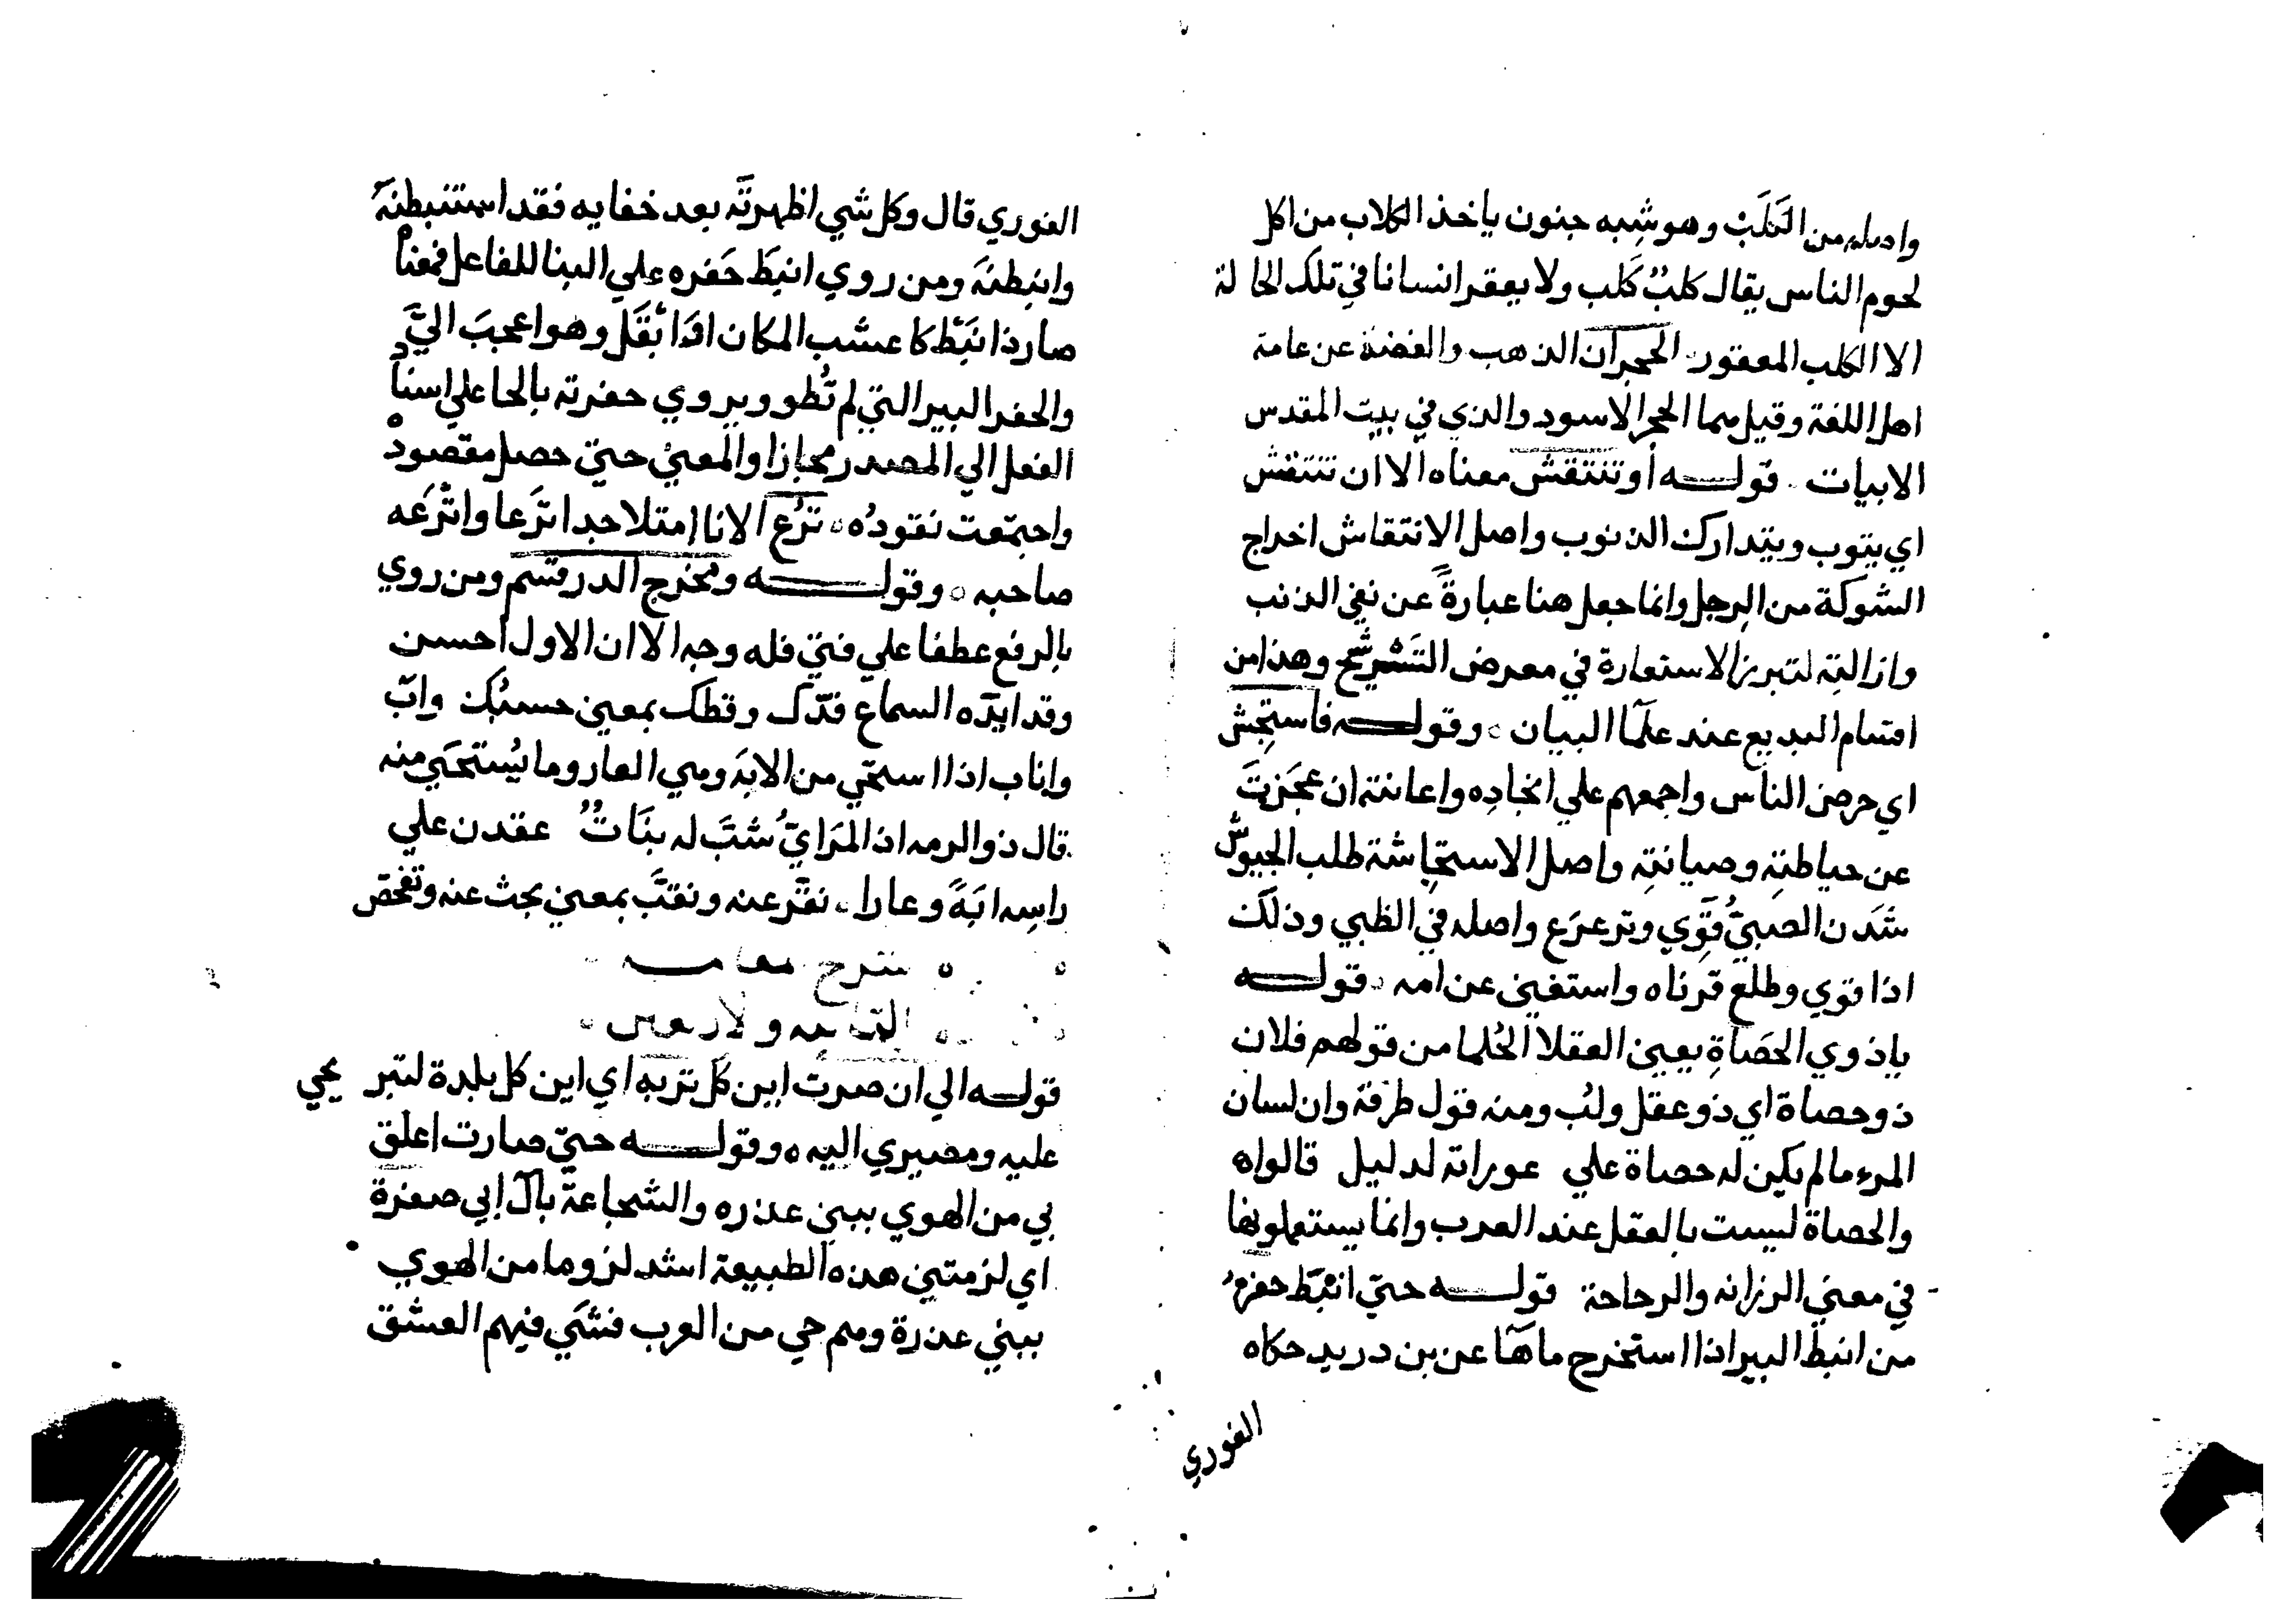 واصله من الكَلَبْ وهو شِبه جنون ياخذ الكلاب من اكل
لحوم الناس يقال كلبٌ كَلب ولا يعقر انسانا في تلك الحالة
الا الكلب المعقور الحجران الذهب والفضة عن عامة
اهل اللغة وقيل هما الحجر الاسود والذي في بيت المقدس
الابيات قوله او تنتقش معناه الا ان تنتقش
اي يتوب ويتدارك الذنوب واصل الانتقاش اخراج
الشوكة من الرجل وانما جعل هنا عبارةً عن نفي الذنب
وازالته لتبرز الاستعارة في معرض التَّرشيح وهذا من
اقسام البديع عند علما البيان وقوله فاستجِش
اي حرض الناس واجمعهم علي انجادِه واعانته ان عجَزتَ
عن حياطتِه وصيانتِه واصل الاستجاشة طلب الجيوش
شَدن الصبيُّ قَوِي وترعرَع واصله في الظبي وذلك
اذا قوي وطلع قرناه واستغني عن امه قوله
ياذوي الحَصَاةِ يعين العقلا الحُلما من قولهم فلان
ذو حصاة اي ذو عقل ولب ومنه قول طرفة وان لسان
المرء مالم يكن له حصاة علي عوراته لدليل قالواه
والحصاة ليست بالعقل عند العرب وانما يستعملونها
في معني الرزانه والرجاحة قوله حتي انبَط حفره
من انبط البير اذا استخرج ماها عن بن دريد حكاه
الغوري
الغوري قال وكل شي اظهرته بعد خفايه فقد استنبطته
وانبطته ومن روي انبطَ حَفره علي البنا للفاعل فمعناه
صار ذا نَبَط كاعشب المكان اذا بُقَل وهو اعجبَ اليَّ
والحفر البير التي لم تُطو ويروي حفرته بالحا علي اسناد
الفعل الي المصدر مجازا والمعني حتي حصل مقصوده
واجتمعت نقودُه تَرُع الانا امتلا جدا تَرَعا واتْرَعه
صاحبه وقوله ومخرج الدر قسَم ومن روي
بالرفع عطفا علي فتي فله وجه الا ان الاول احسن
وقد ايدَه السماع قدَك وقطك بمعني حسبُك واب
واناب اذا استحي من الابَه وهي العار وما يُستحَي منه
قال ذوالرمه اذا المَرَايُّ شَبَّ له بنَاتٌ عقدن علي
راسِه ابَةً وعارا نقَّر عنه ونقَّب بمعني بحث عنه وتفحَّص
شرح مقامه
الثامنه والاربعين
قوله الي ان صرتُ ابن كل تربه اي ابن كل بلدة لتبر يحي
عليه ومصيري اليه وقوله حتي صارت اعلق
بي من الهوي ببني عذره والشجاعة بآل ابي صفرة
اي لزمتني هذه الطبيعة اشد لزوما من الهوي
ببني عذرة وهم حي من العرب فشي فيهم العشق